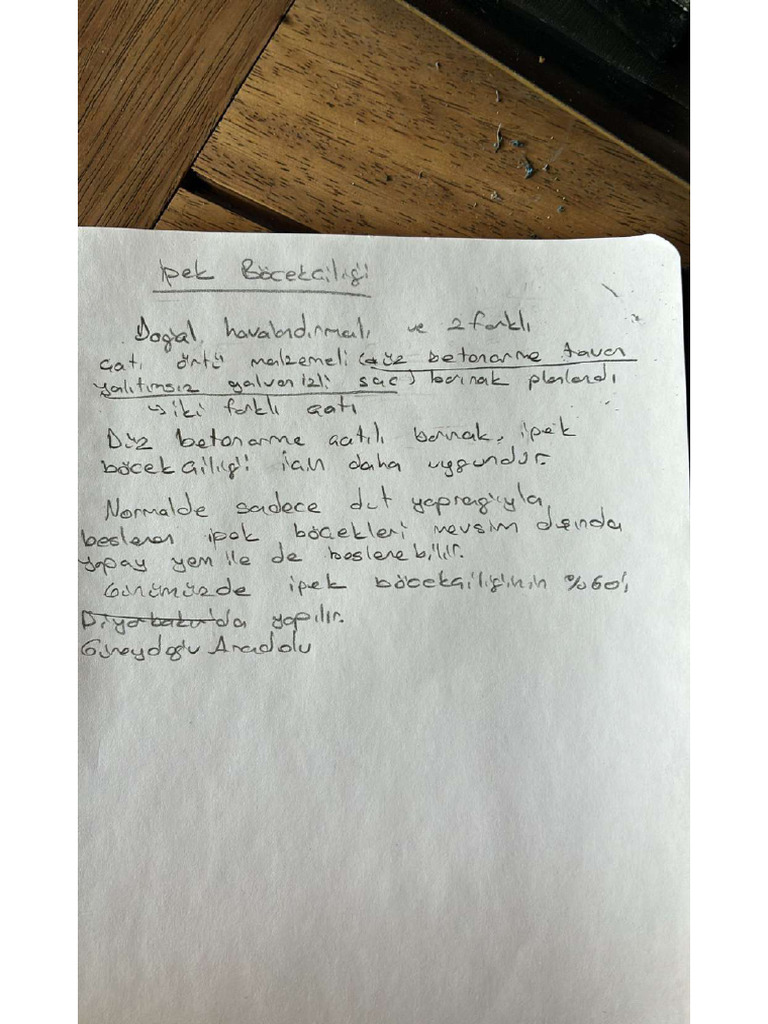 İpek Böcekçiliği
Doğal havalandırmalı ve 2 farklı
çatı örtü malzemeli (düz betonarme tavan
yalıtımsız galvanizli sac) barınak planlandı
↳ iki farklı çatı
Düz betonarme çatılı barınak, ipek
böcekçiliği için daha uygundur.
Normalde sadece dut yaprağıyla
beslenen ipek böcekleri mevsim dışında
yapay yem ile de beslenebilir.
Günümüzde ipek böcekçiliğinin %60'ı
Diyarbakır'da yapılır.
Güneydoğu Anadolu